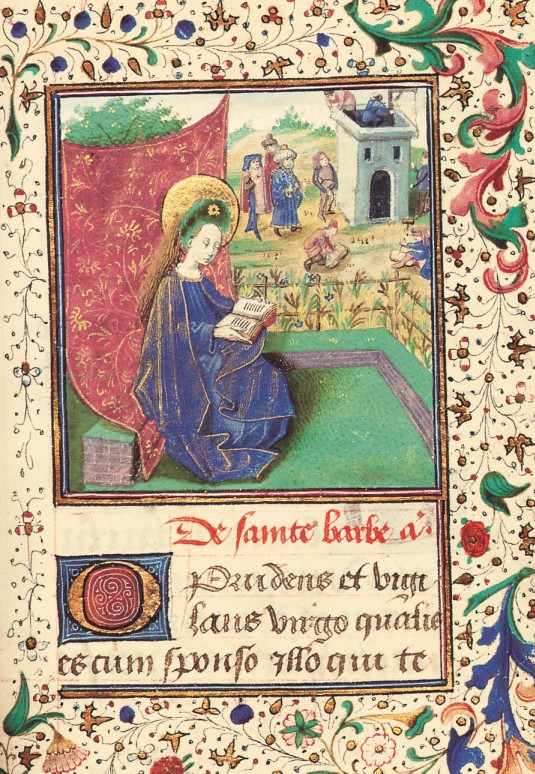 De sainte barbe aː
O Prudens et vigi
lans virgo qualis
es cum sponso illo qui te